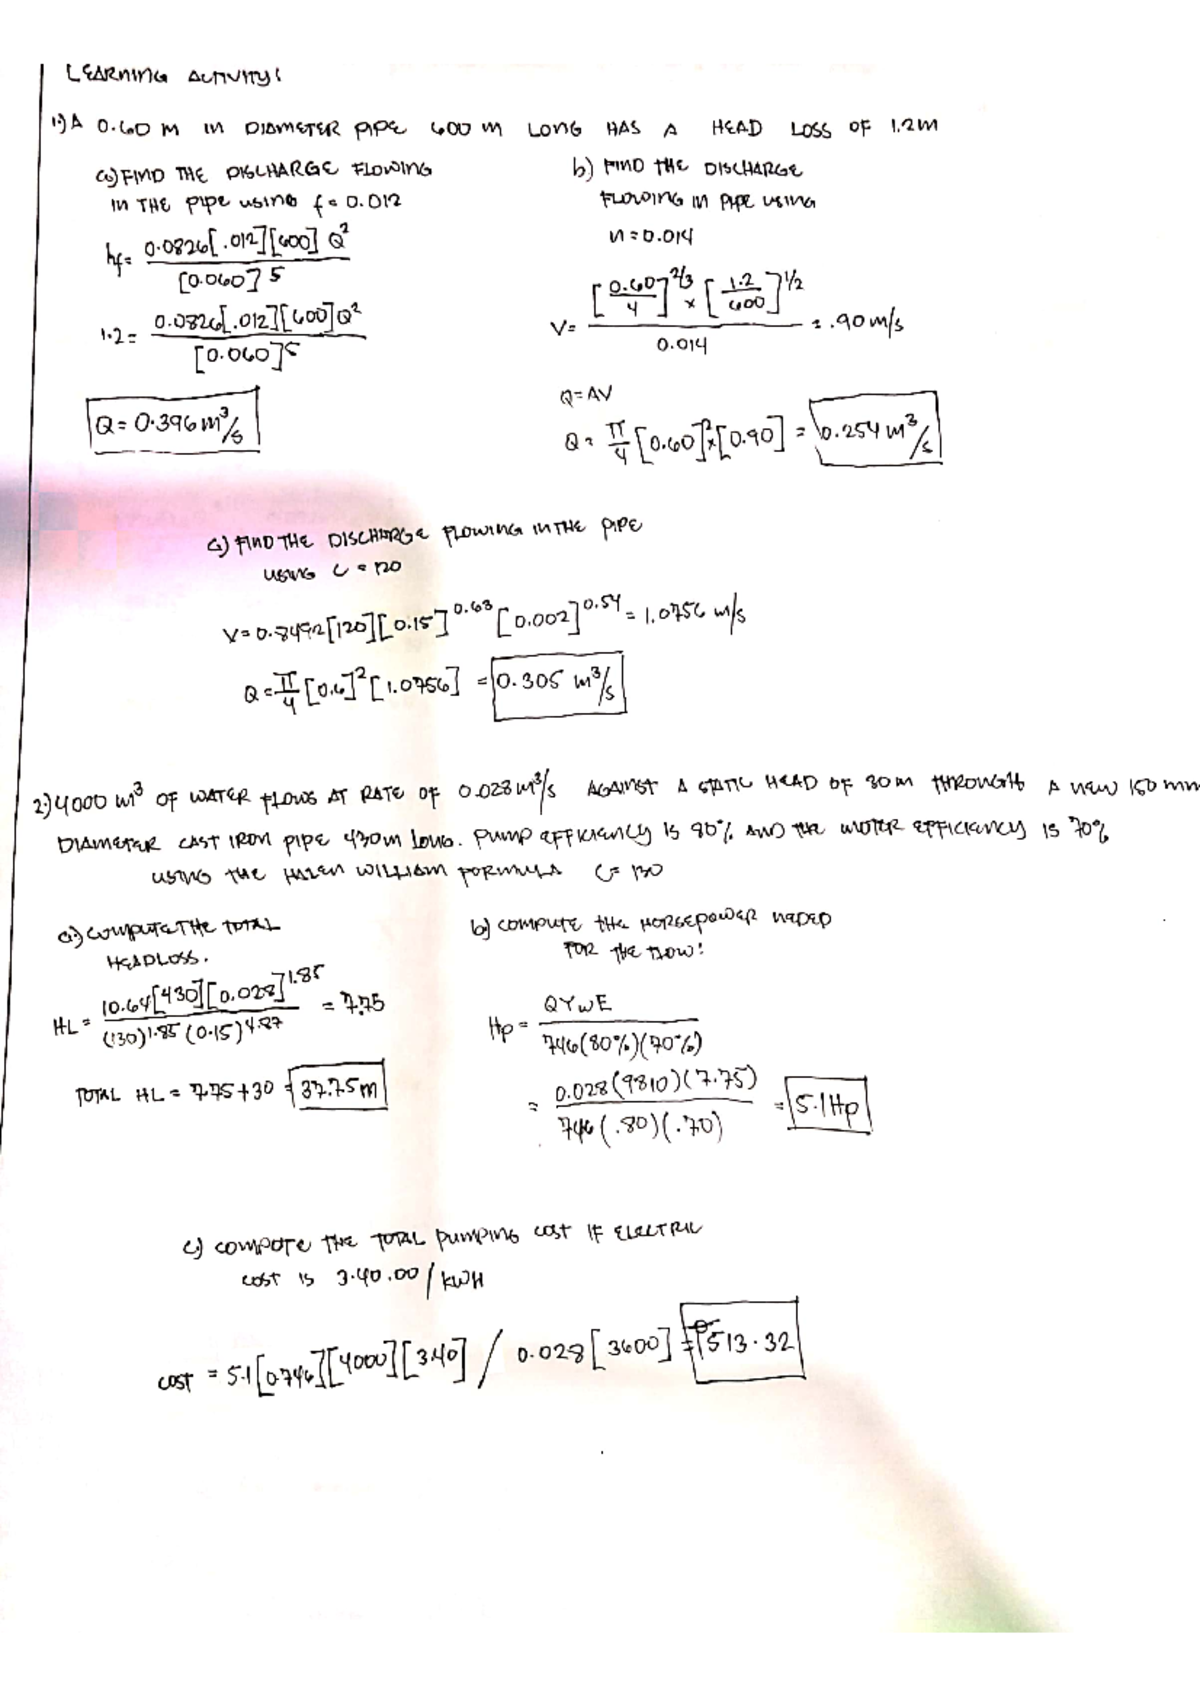 LEARNING ACTIVITY:
1.) A 0.60 M IN DIAMETER PIPE 600 M LONG HAS A HEAD LOSS OF 1.2M
a) FIND THE DISCHARGE FLOWING
IN THE PIPE USING f = 0.012
hf = 0.0826[.012][600] Q²
[0.060]5
1.2 = 0.0826[.012][600]Q²
[0.060]5
Q = 0.396 m³/s
b) FIND THE DISCHARGE
FLOWING IN PIPE USING
n = 0.014
V = [0.60/4]^2/3 x [1.2/600]^1/2 = .90 m/s
0.014
Q = AV
Q = π/4 [0.60]² x [0.90] = 0.254 m³/s
c) FIND THE DISCHARGE FLOWING IN THE PIPE
USING C = 120
V = 0.8492[120][0.15]^0.63 [0.002]^0.54 = 1.0756 m/s
Q = π/4 [0.6]² [1.0756] = 0.305 m³/s
2.) 4000 m³ OF WATER FLOWS AT RATE OF 0.028 m³/s AGAINST A STATIC HEAD OF 30 M THROUGH A NEW 150 mm
DIAMETER CAST IRON PIPE 430M LONG. PUMP EFFICIENCY IS 80% AND THE MOTOR EFFICIENCY IS 70%
USING THE HAZEN WILLIAM FORMULA C = 130
a.) COMPUTE THE TOTAL
HEADLOSS.
HL = 10.64[430][0.028]^1.85 = 7.75
(130)^1.85 (0.15)^4.87
TOTAL HL = 7.75 + 30 = 37.75m
b) COMPUTE THE HORSEPOWER NEDED
FOR THE FLOW:
Hp = QYwE
746(80%)(70%)
= 0.028(9810)(7.75)
746(.80)(.70)
= 5.1 Hp
c) COMPUTE THE TOTAL PUMPING COST IF ELECTRIC
COST IS 3.40.00 / KWH
COST = 5.1[0.746][4000][3.40] / 0.028[3600] = ₱513.32